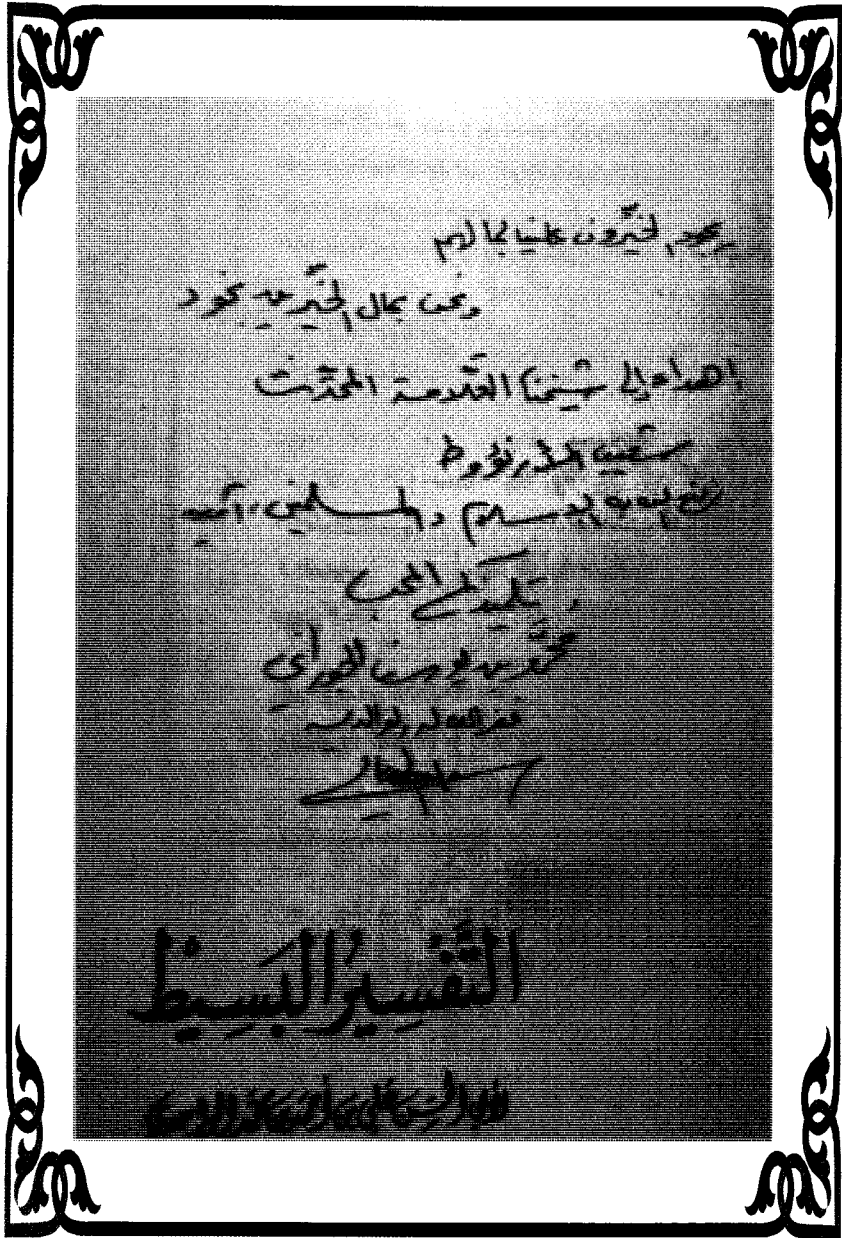 يجود الخيّرون علينا بمالهم
ونحن بمال الخيّرين نجود
إهداء إلى شيخنا العلّامة المحدّث
شعيب الأرنؤوط
نفع الله به الإسلام والمسلمين، آمين
تلميذكم المحب
محمّد بن يوسف الجوراني
غفر الله له ولوالديه
التَّفْسِيرُ البَسِيْطُ
لأبي الحسن علي بن أحمد بن محمد الواحدي